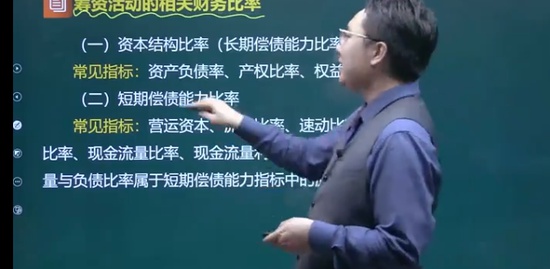 筹资活动的相关财务比率
（一）资本结构比率（长期偿债能力比率
常见指标：资产负债率、产权比率、权益
（二）短期偿债能力比率
常见指标：营运资本、流动比率、速动比
比率、现金流量比率、现金流量
量与负债比率属于短期偿债能力指标中的